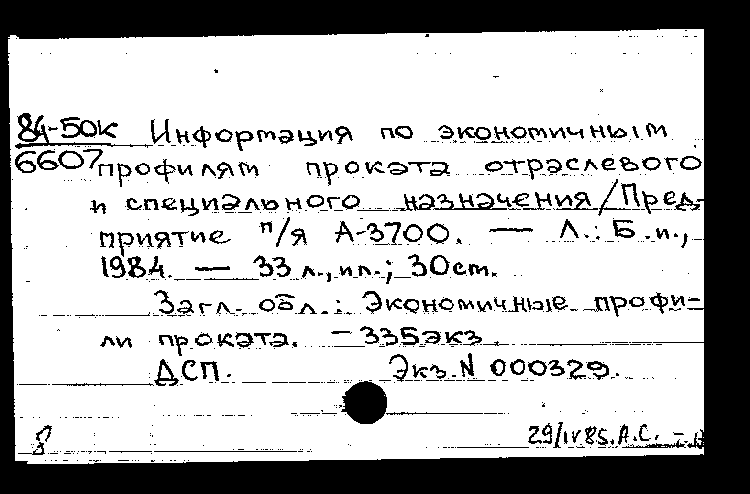 84-50к Информация по экономичным
6607 профилям проката отраслевого
и специального назначения / Пред-
приятие п/я А-3700. — Л.: Б.и.,
1984. — 33 л., ил.; 30см.
Загл. обл.: Экономичные профи-
ли проката. — 335экз.
ДСП. Экз. N 000329.
29/IV 85. А.С.